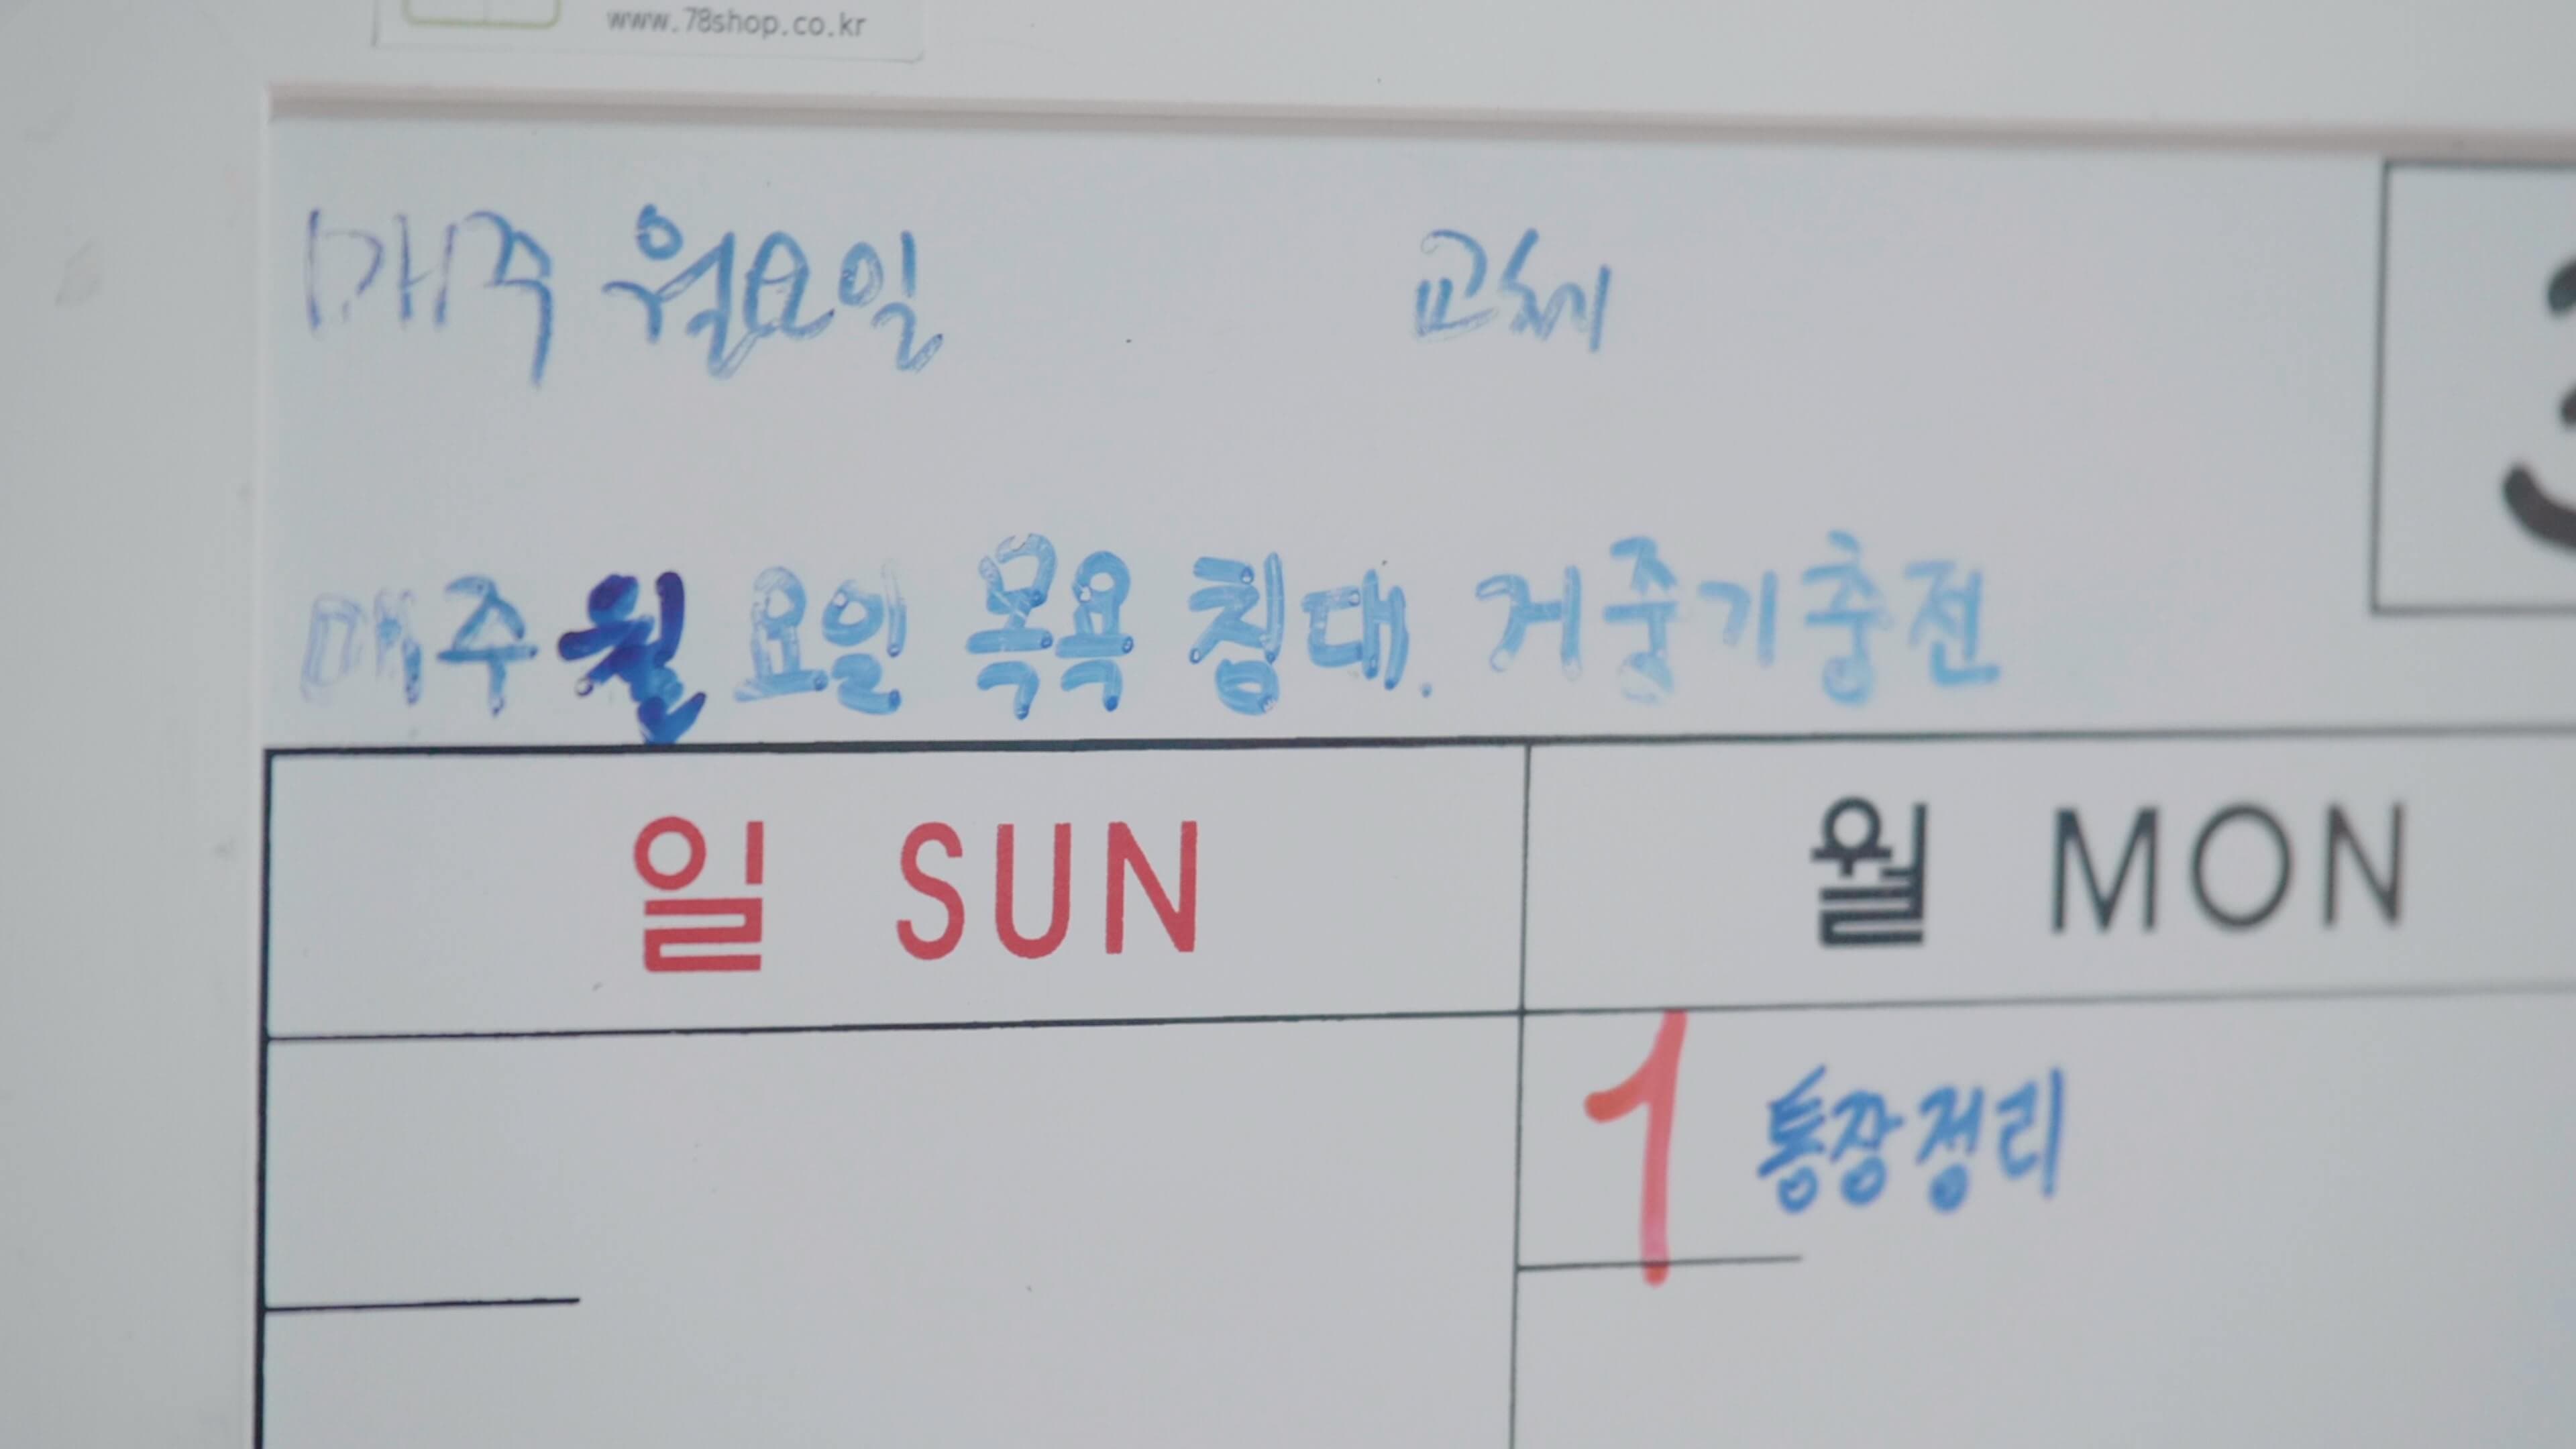 www.78shop.co.kr
매주 월요일 교체
3
매주 월요일 목욕침대. 거중기충전
일 SUN 월 MON
1 통장정리